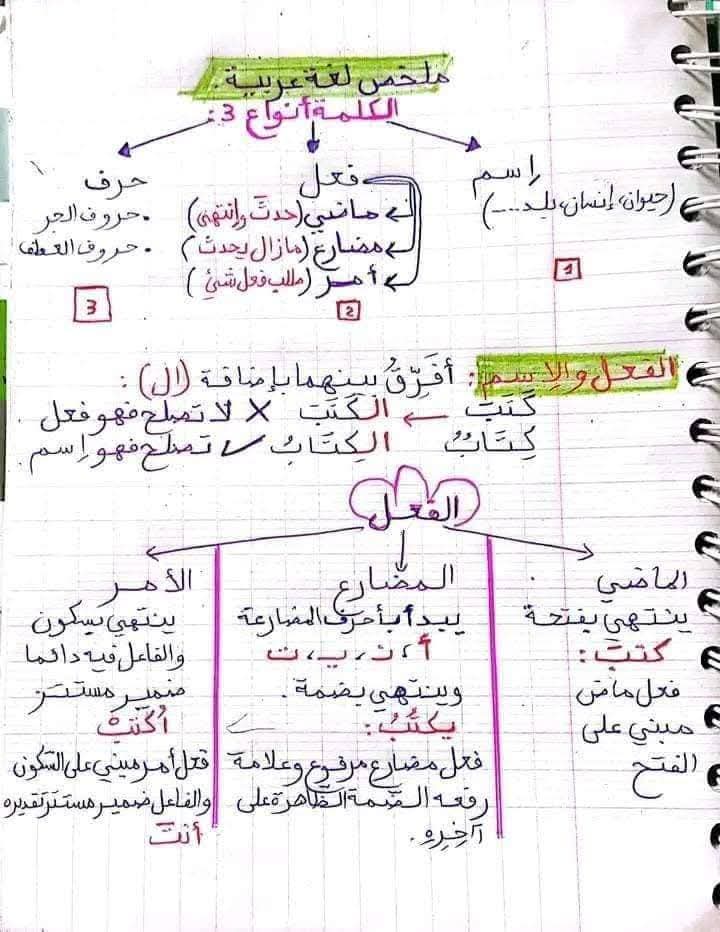 ملخص لغة عربية.
الكلمة أنواع 3:
إسم
(حيوان، إنسان، بلد....)
1
فعل
ماضي (حدث وإنتهى)
مضارع (مازال يحدث)
أمر (طلب فعل شئ)
2
حرف
. حروف الجر
. حروف العطف
3
الفعل والإسم: أفَرِّقُ بينهما بإضافة (ال):
كَتَبَ ← الكَتَبَ × لا تصلح فهو فعل
كِتَابٌ الكِتَابُ ✓ تصلح فهو إسم.
الفعل
الماضي
ينتهي بفتحة
كتبَ:
فعل ماض
مبني على
الفتح
المضارع
يبدأ بأحرف المضارعة
أ، ن، ي، ت
وينتهي بضمة.
يكتُبُ:
فعل مضارع مرفوع وعلامة
رفعه الضمة الظاهرة على
آخِرِهِ.
الأمر
ينتهي بسكون
والفاعل فيه دائما
ضمير مستتر
أُكتبْ
فعل أمر مبني على السكون
والفاعل ضمير مستتر تقديره
أنتَ